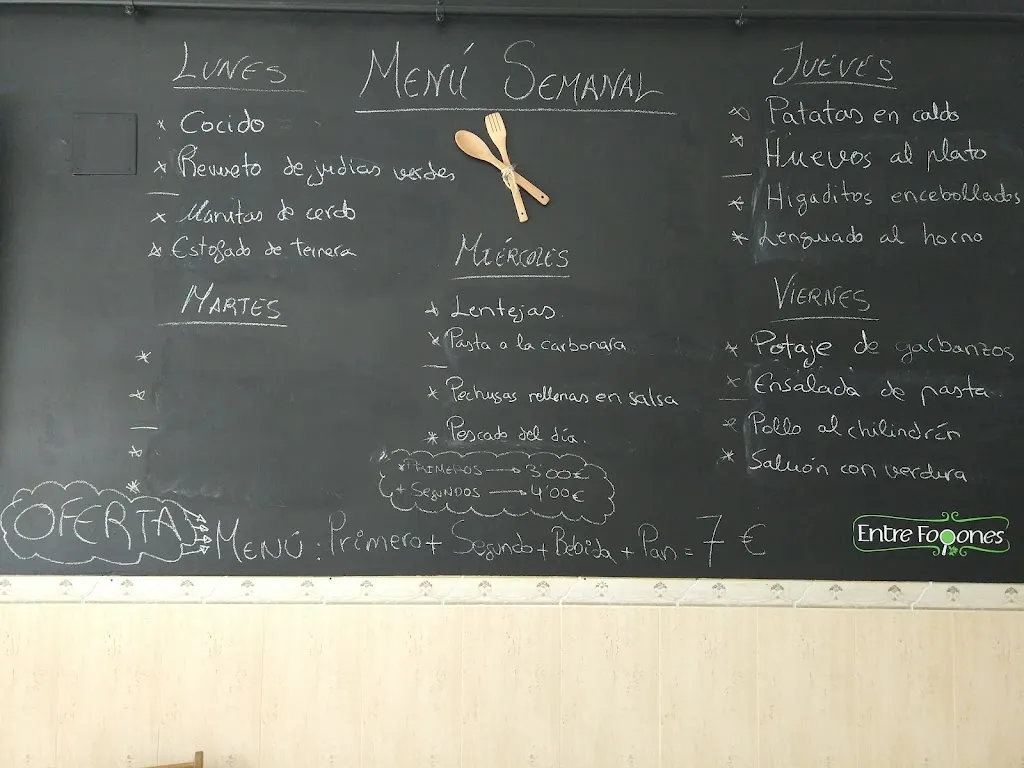 MENÚ SEMANAL
LUNES
Cocido
Revueto de judias verdes
Manitas de cerdo
Estofado de ternera
MARTES
MIÉRCOLES
Lentejas.
Pasta a la carbonara
Pechugas rellenas en salsa
Pescado del día.
PRIMEROS 3'00€
+ SEGUNDOS 4'00€
JUEVES
Patatas en caldo
Huevos al plato
Higaditos encebollados
Lenguado al horno
VIERNES
Potaje de garbanzos
Ensalada de pasta
Pollo al chilindrón
Salmón con verdura
OFERTA MENÚ: Primero + Segundo + Bebida + Pan = 7 €
Entre Fogones